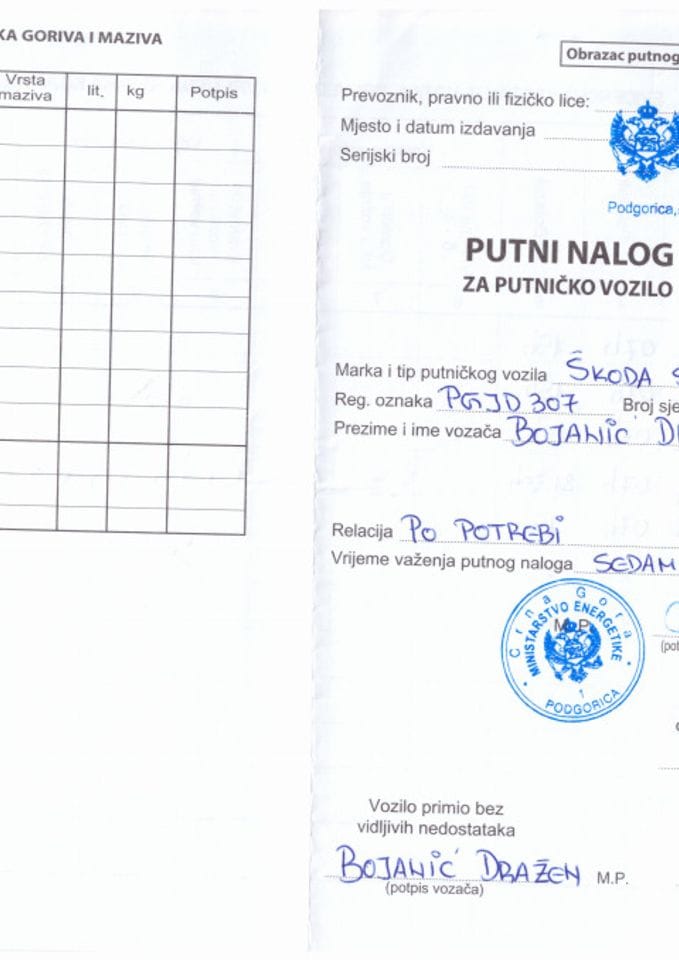 KA GORIVA I MAZIVA
Vrsta maziva lit. kg Potpis
Obrazac putnog
Prevoznik, pravno ili fizičko lice:
Mjesto i datum izdavanja
Serijski broj
Podgorica,
PUTNI NALOG
ZA PUTNIČKO VOZILO
Marka i tip putničkog vozila ŠKODA S
Reg. oznaka PGJD 307 Broj sje
Prezime i ime vozača BOJANIĆ D
Relacija PO POTREBI
Vrijeme važenja putnog naloga SEDAM
Crna Gora
MINISTARSTVO ENERGETIKE
M.P.
1
PODGORICA
(pot
Vozilo primio bez
vidljivih nedostataka
BOJANIĆ DRAŽEN M.P.
(potpis vozača)